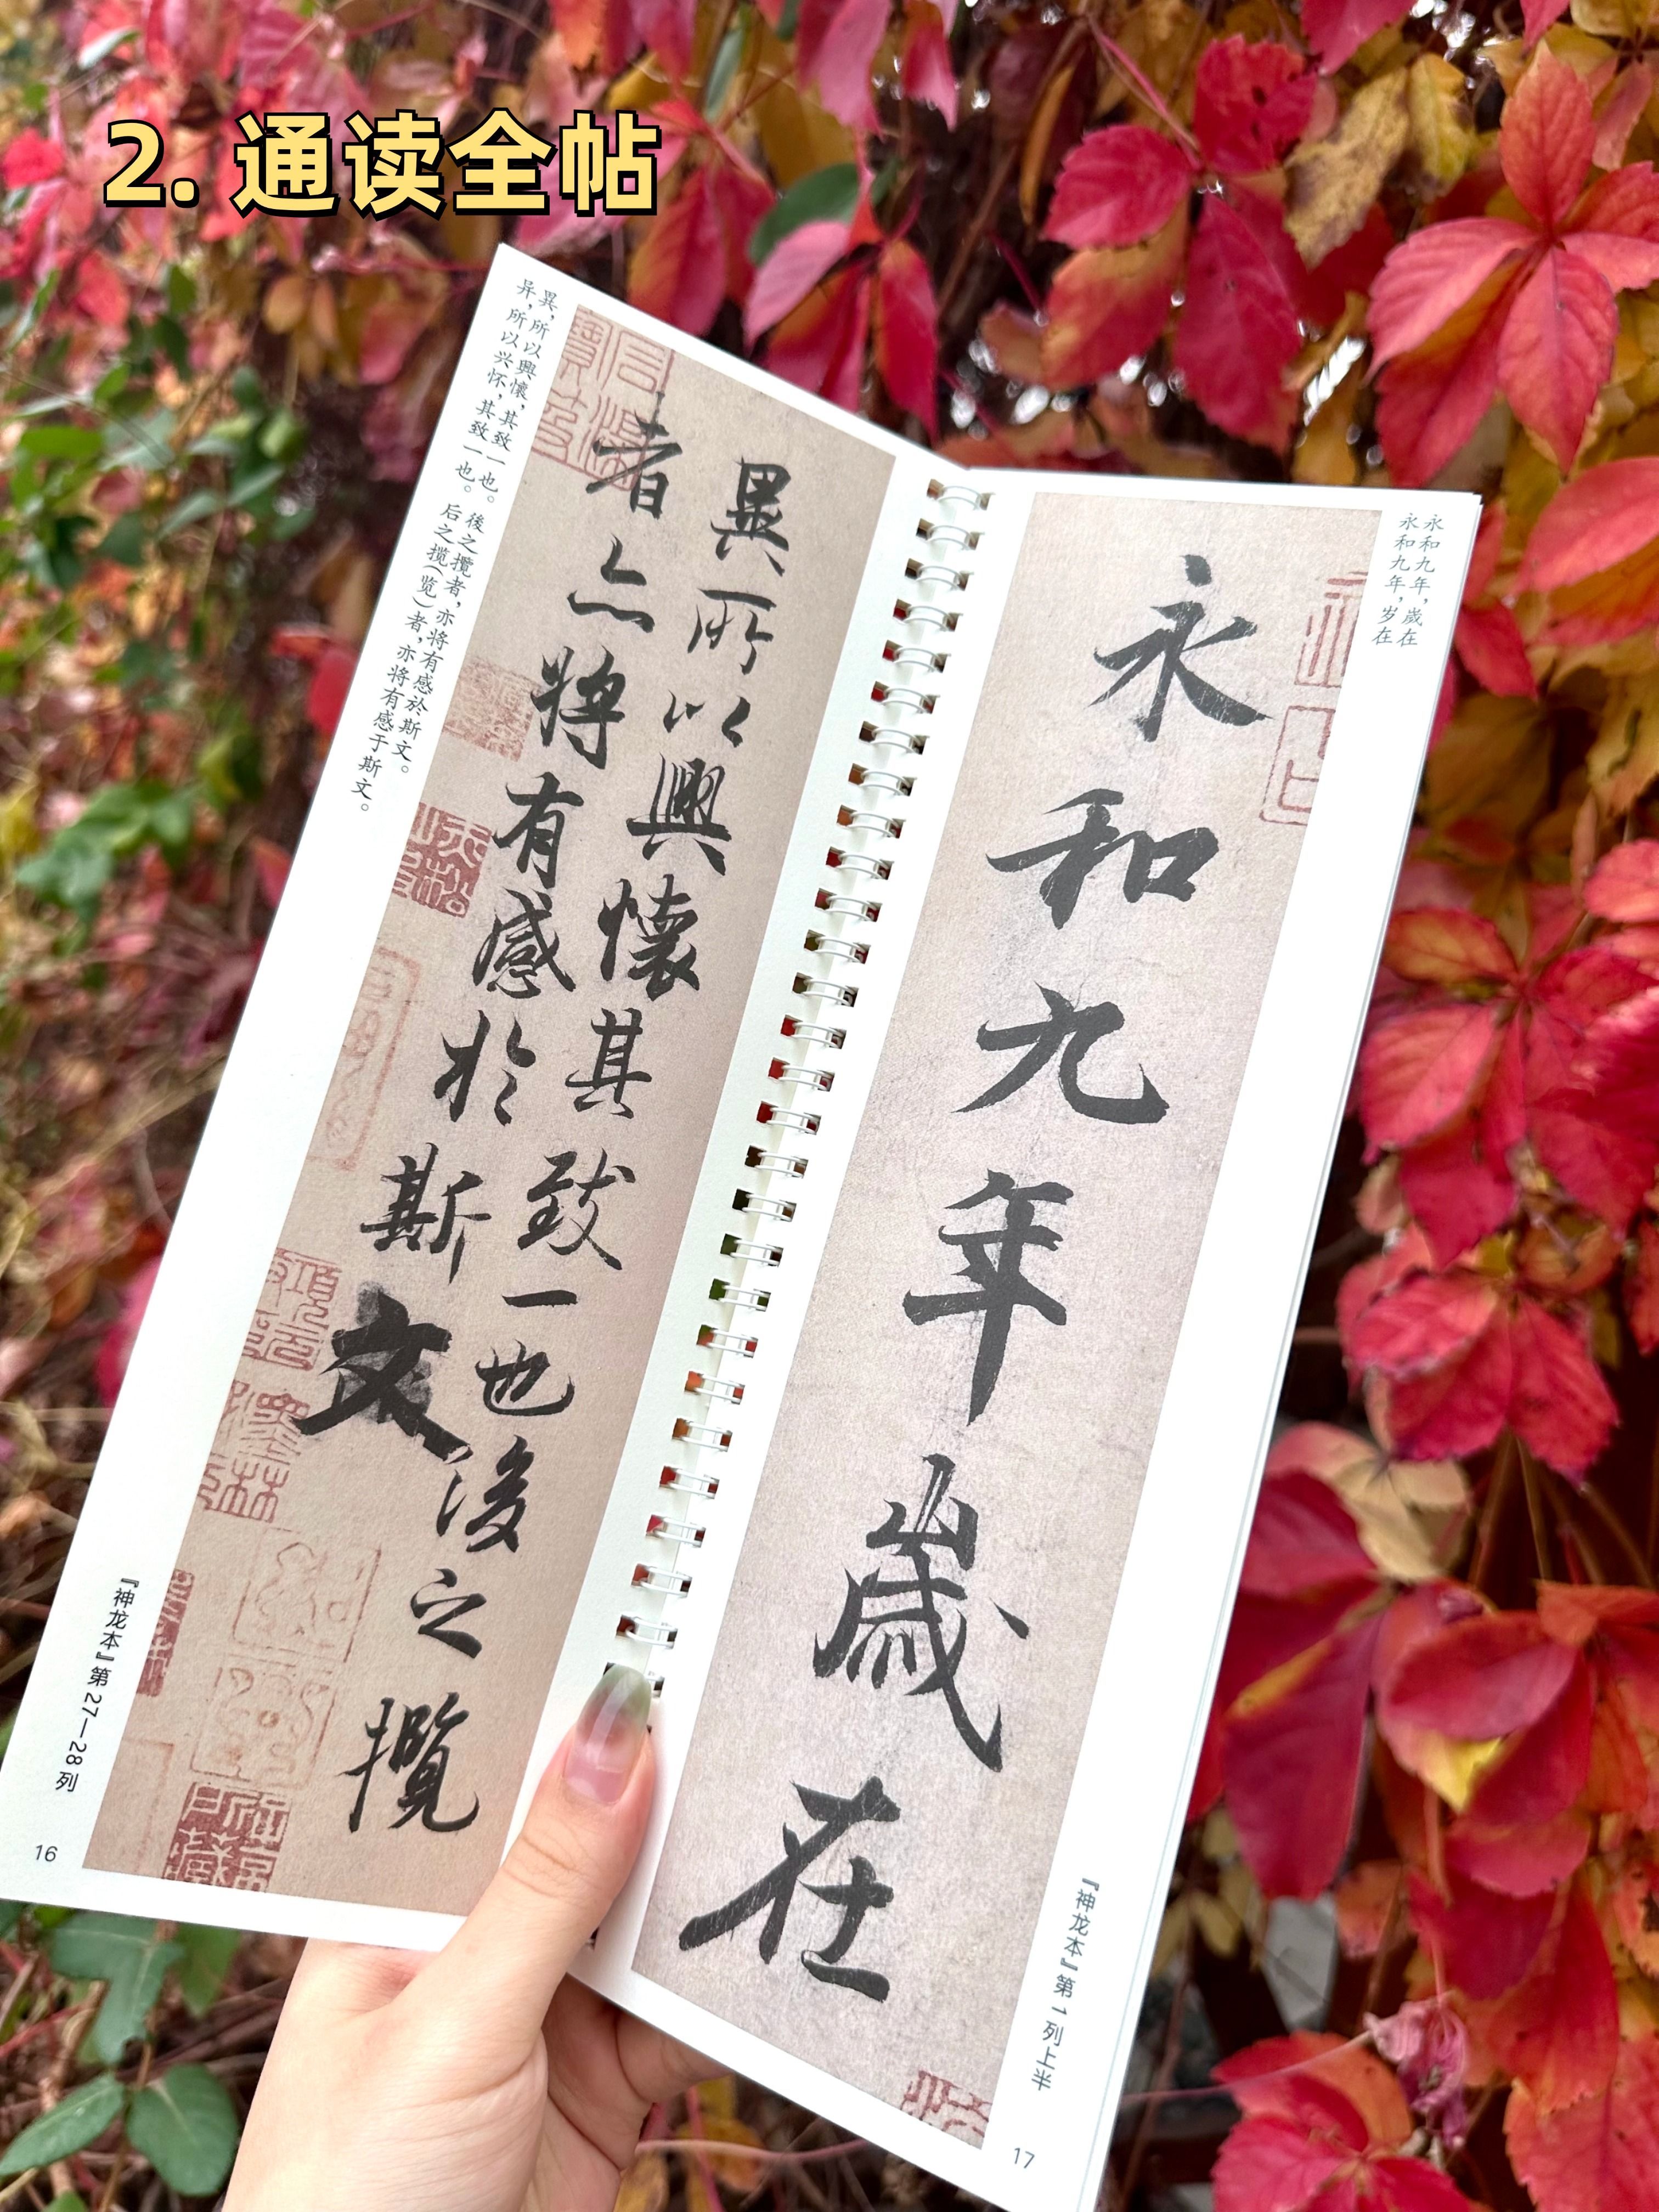 2. 通读全帖
異，所以興懷，其致一也。後之攬者，亦将有感於斯文。
异，所以兴怀，其致一也。后之揽（览）者，亦将有感于斯文。
異所以興懷其致一也後之攬
者亦將有感於斯文
『神龙本』第27—28列
16
永和九年，歲在
永和九年，岁在
永和九年歲在
『神龙本』第1列上半
17